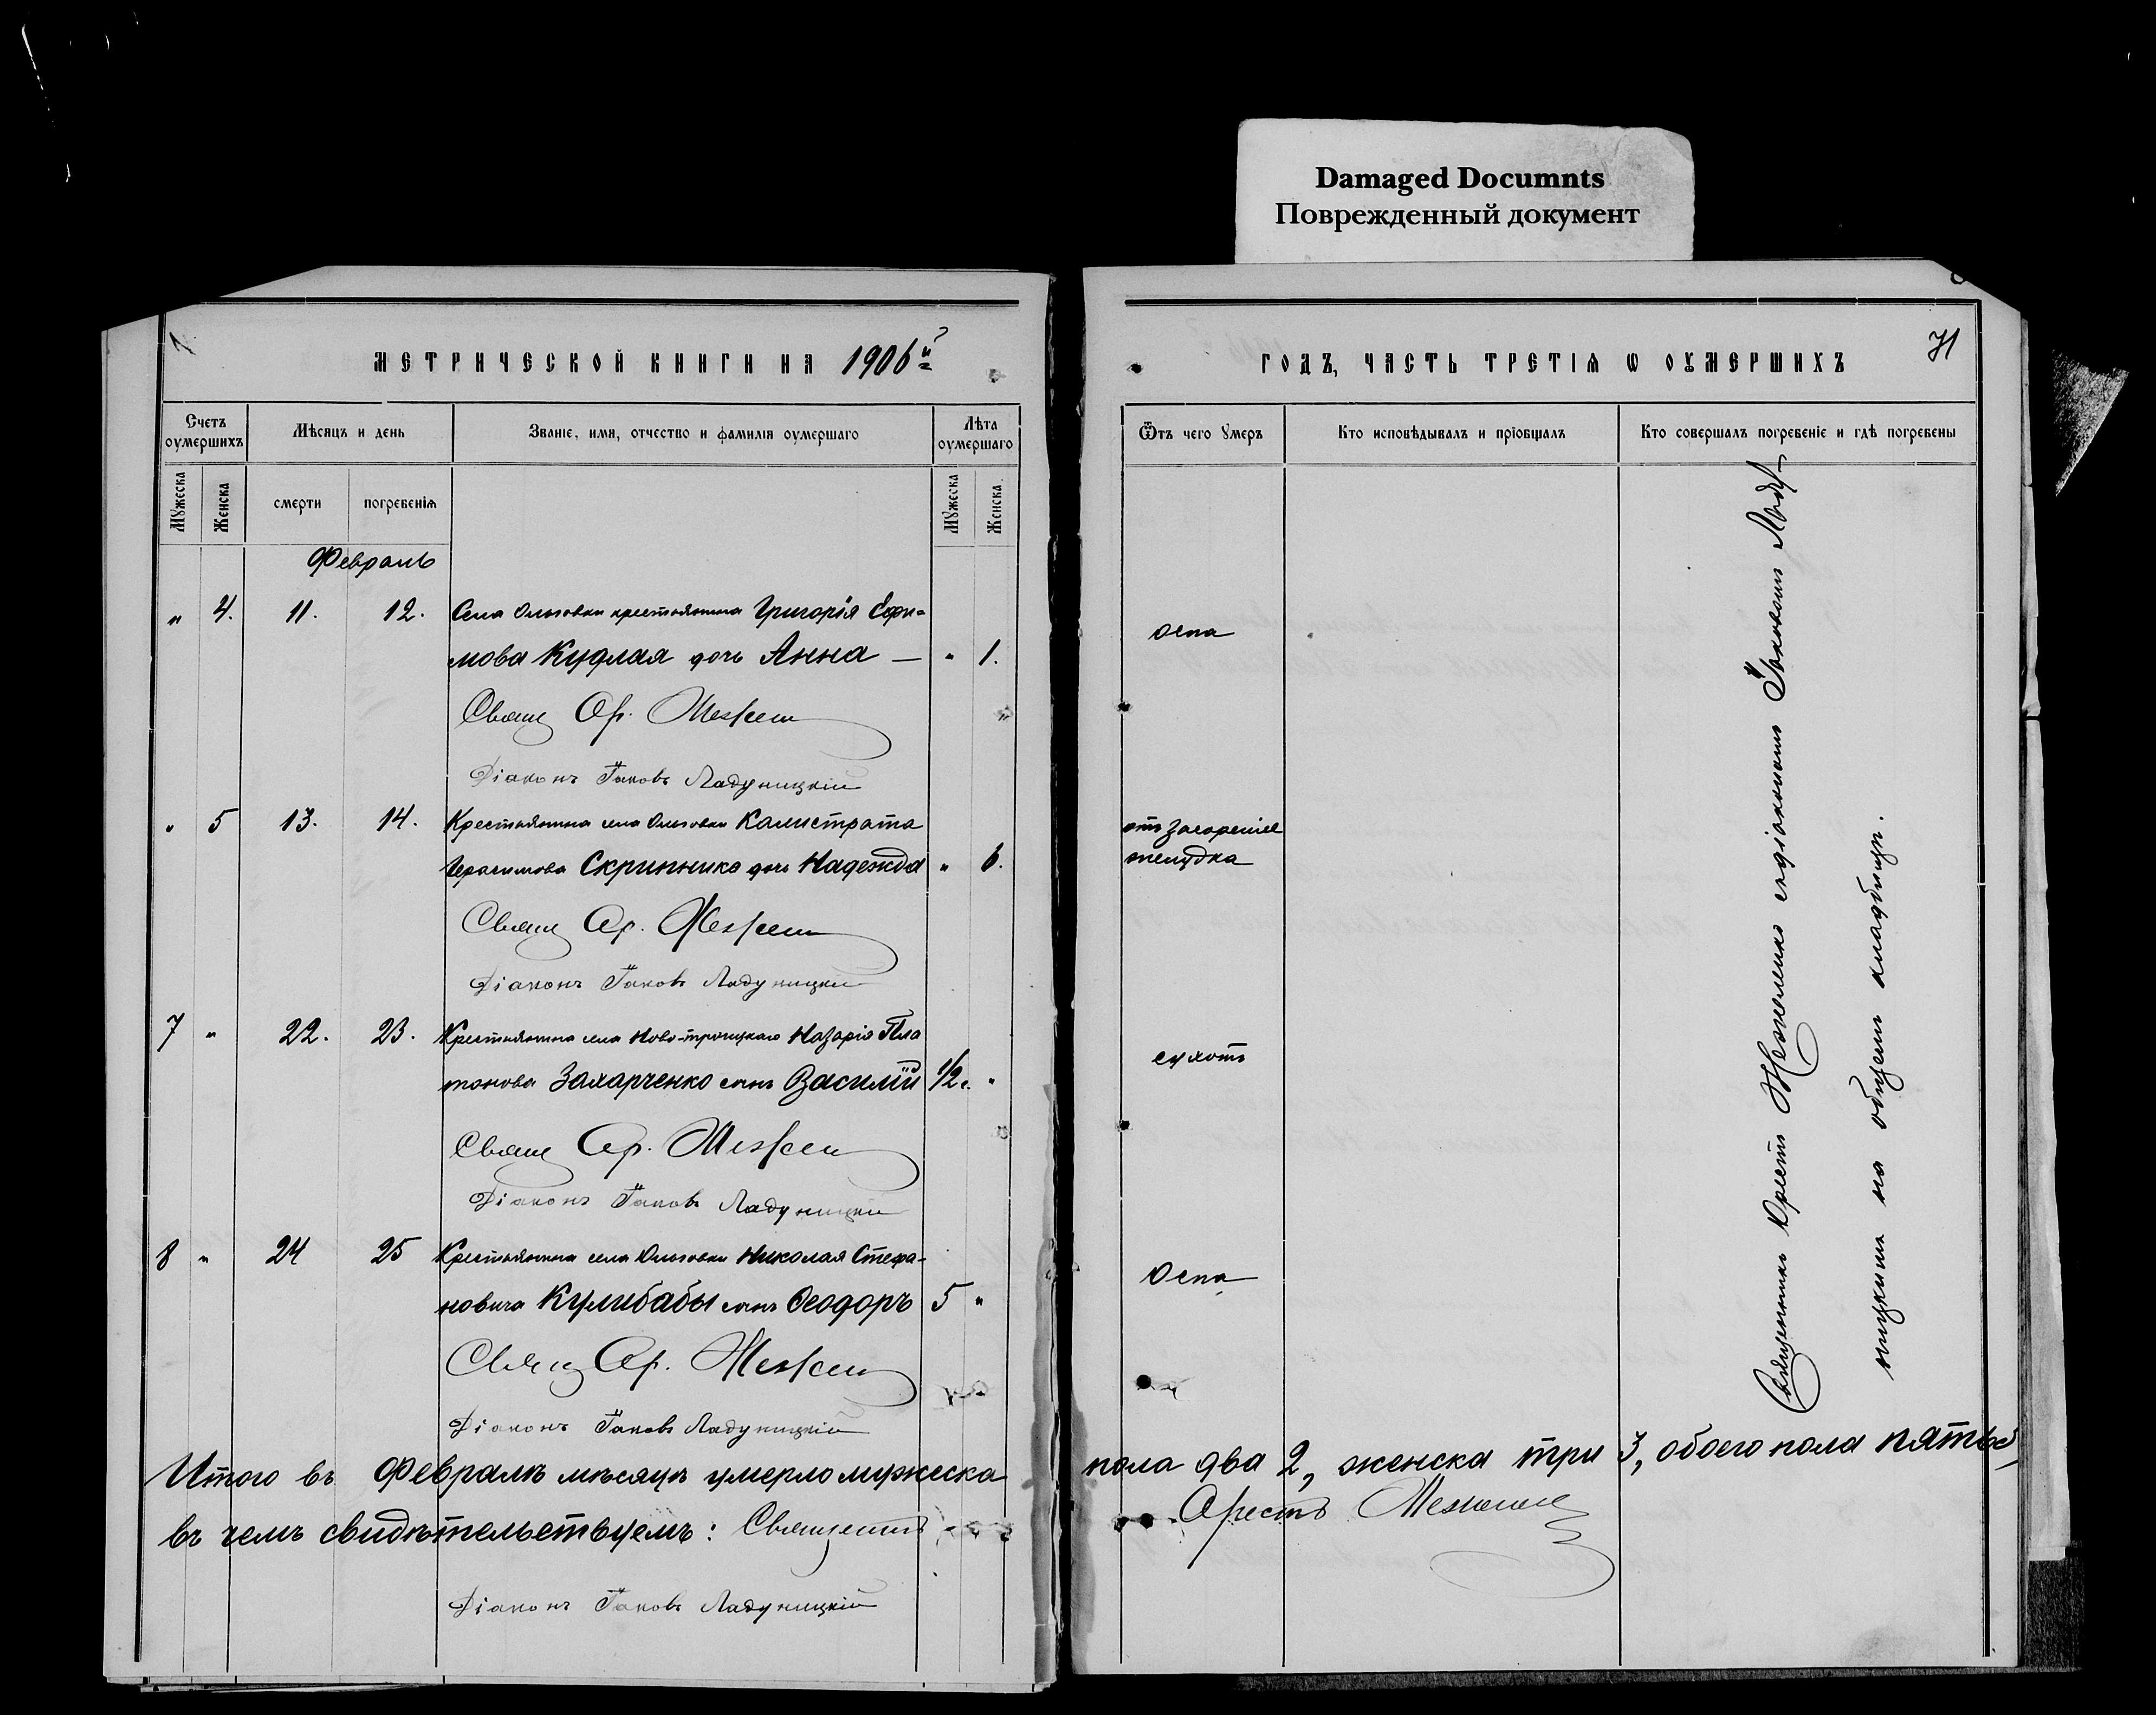 Damaged Documnts
Поврежденный документ
МЕТРИЧЕСКОЙ КНИГИ НА 1906й
ГОДЪ, ЧАСТЬ ТРЕТІѦ Ѡ ОУМЕРШИХЪ
71
Счетъ оумершихъ
Мѣсяцъ и день
Званіе, имя, отчество и фамилія оумершаго
Лѣта оумершаго
Ѿтъ чего умеръ
Кто исповѣдывалъ и пріобщалъ
Кто совершалъ погребеніе и гдѣ погребены
Мужеска
Женска
смерти
погребенія
Мужеска
Женска
Февраль
" 4. 11. 12. Села Ольговки крестьянина Григорія Ефи-
мова Кудлая дочь Анна — " 1.
оспа
Свящ Ор.
Діаконъ Іаковъ Ладуницкій
" 5 13. 14. Крестьянина села Ольговки Калистрата
Герасимова Скрипника дочь Надежда " 6.
отъ засоренія
желудка
Свящ Ор.
Діаконъ Іаковъ Ладуницкій
7 " 22. 23. Крестьянина села Ново-троицкаго Назарія Пла
тонова Захарченко сынъ Василій 1/2 г. "
сухоты
Свящ Ор.
Діаконъ Іаковъ Ладуницкій
8 " 24 25 Крестьянина села Ольговки Николая Стефа-
новича Кулибабы сынъ Ѳеодоръ 5 "
Оспа
Свящ Ор.
Діаконъ Іаковъ Ладуницкій
Священникъ Орестъ съ діакономъ Іаковомъ Ладу-
ницкимъ на общемъ кладбищѣ.
Итого въ Февралѣ мѣсяцѣ умерло мужеска пола два 2, женска три 3, обоего пола пять 5,
въ чемъ свидѣтельствуемъ: Священникъ Орестъ
Діаконъ Іаковъ Ладуницкій